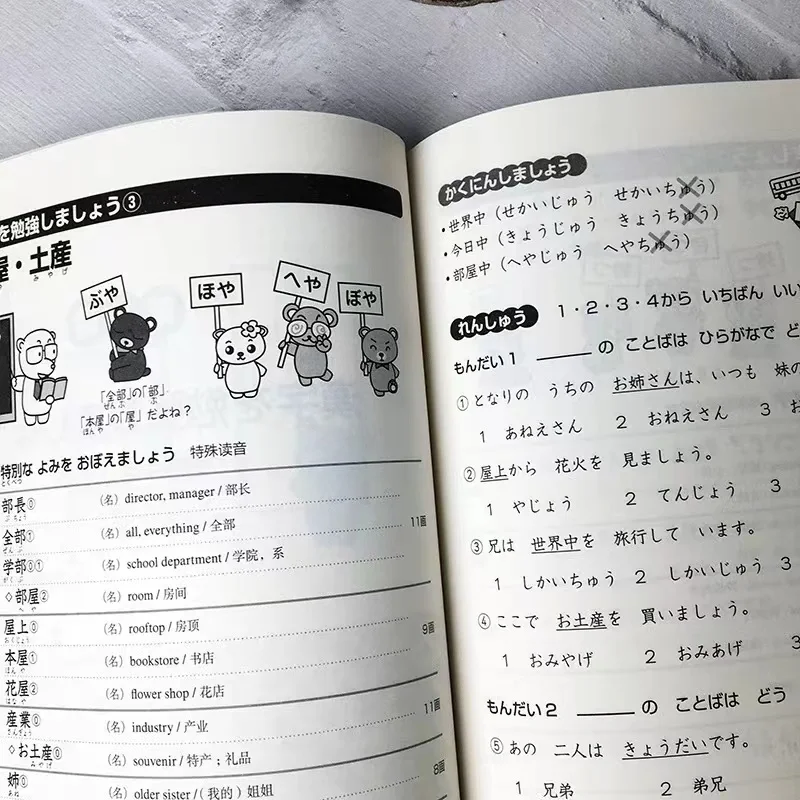 を勉強しましょう③
屋・土産
みやげ
ぶや
ほや
へや
ぼや
「全部」の「部」
ぜんぶ ぶ
「本屋」の「屋」だよね?
ほんや や
特別な よみを おぼえましょう 特殊读音
とくべつ
部長⓪ (名) director, manager / 部长
ぶちょう
全部① (名) all, everything / 全部 11画
ぜんぶ
学部⓪① (名) school department / 学院,系
がくぶ
◇部屋② (名) room / 房间
へや
屋上⓪ (名) rooftop / 房顶 9画
おくじょう
本屋① (名) bookstore / 书店
ほんや
花屋② (名) flower shop / 花店
はなや
産業⓪ (名) industry / 产业 11画
さんぎょう
◇お土産⓪ (名) souvenir / 特产;礼品
みやげ
姉⓪ (名) older sister /(我的)姐姐 8画
あね
かくにんしましょう
・世界中(せかいじゅう せかいちゅう)
・今日中(きょうじゅう きょうちゅう)
・部屋中(へやじゅう へやちゅう)
れんしゅう 1・2・3・4から いちばん いい
もんだい1 ＿＿の ことばは ひらがなで ど
①となりの うちの お姉さんは、いつも 妹の
1 あねえさん 2 おねえさん 3 お
②屋上から 花火を 見ましょう。
1 やじょう 2 てんじょう 3
③兄は 世界中を 旅行して います。
1 しかいちゅう 2 しかいじゅう 3
④ここで お土産を 買いましょう。
1 おみやげ 2 おみあげ 3
もんだい2 ＿＿の ことばは どう
⑤あの 二人は きょうだいです。
1 兄弟 2 弟兄